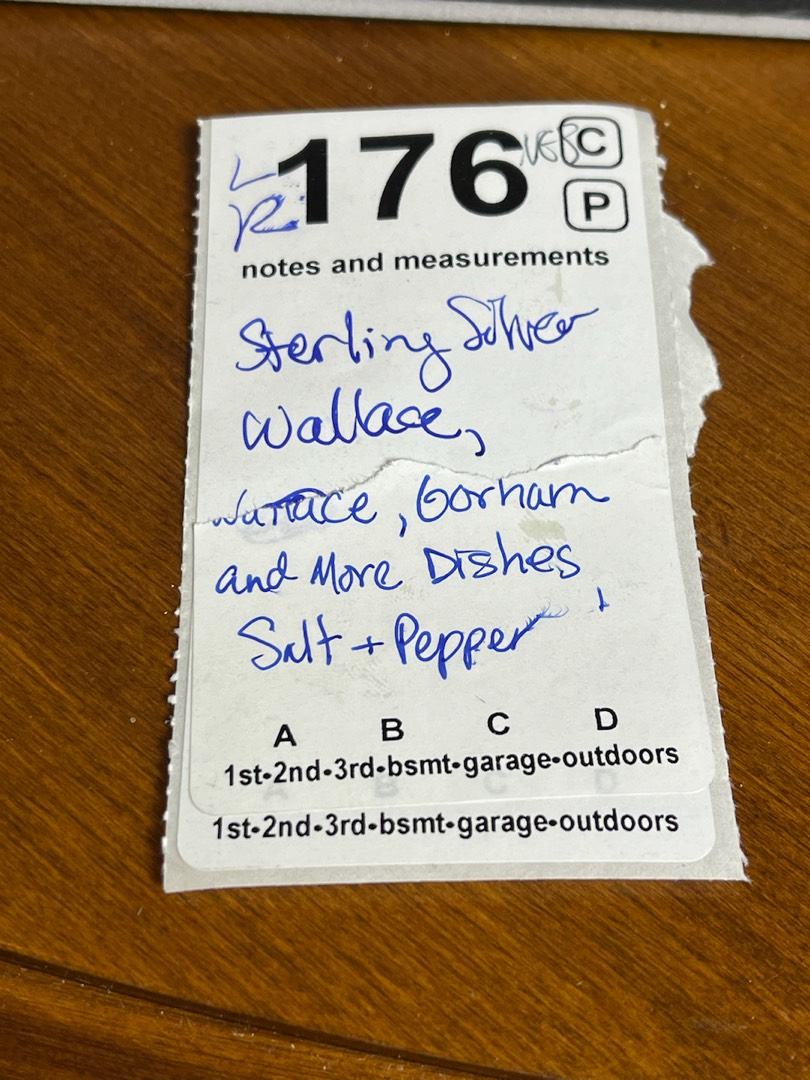 L 176 C
R P
notes and measurements
Sterling Silver
Wallace,
Wallace, Gorham
and More Dishes
Salt + Pepper
A B C D
1st•2nd•3rd•bsmt•garage•outdoors
1st•2nd•3rd•bsmt•garage•outdoors